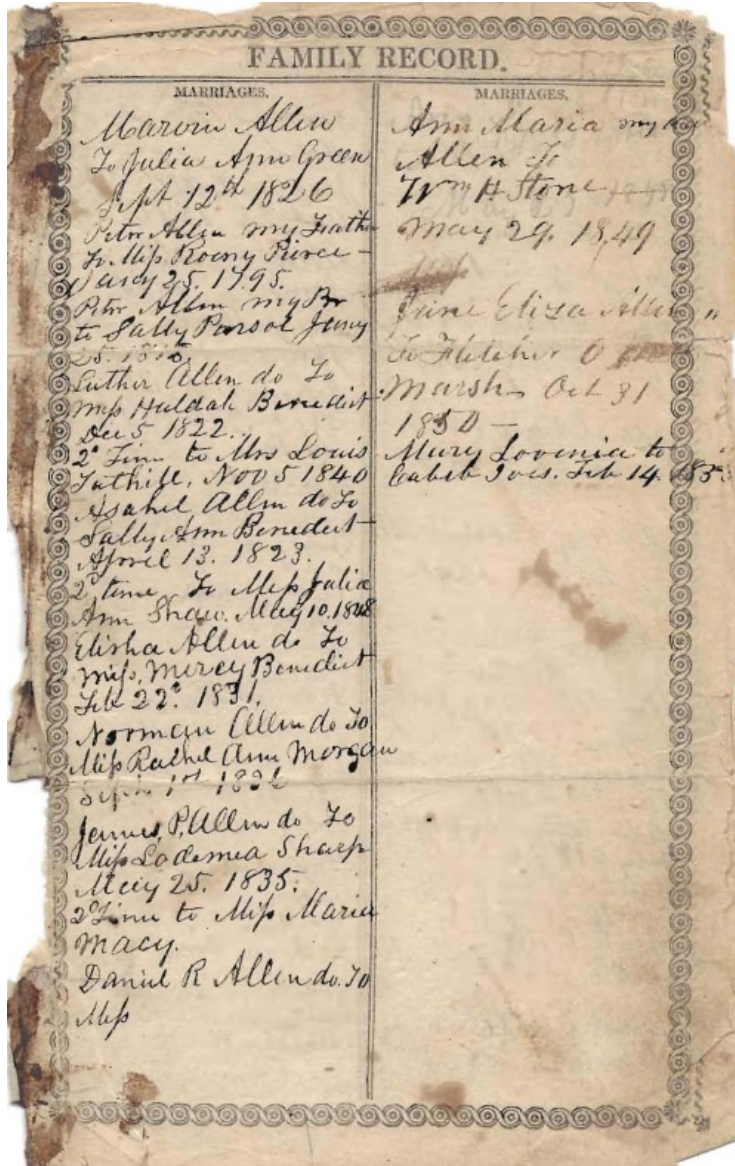 FAMILY RECORD.
MARRIAGES.
Marvin Allen
To Julia Ann Green
Sept 12th 1826
Peter Allen my Fath
To Miss Roeny Pierce
Jany 25. 1795.
Peter Allen my Br
to Sally Jany
25.
Luther Allen do To
Miss Huldah Benedict
Dec 5 1822.
2d Time to Mrs Louis
Tuthill, Nov 5 1840
Asahel Allen do To
Sally Ann Benedict
April 13. 1823.
2d time To Miss Julia
Ann Shaw. May 10. 1848
Elisha Allen do To
Miss, Mercy Benedict
Feb 22d. 1831.
Norman Allen do To
Miss Rachel Ann Morgan
Sept 1st
James, P. Allen do To
Miss Lodemea Sharp
May 25. 1835.
2d Time to Miss Maria
Macy.
Daniel R Allen do. To
Miss
MARRIAGES.
Ann Maria my
Allen To
Wm H Stone
May 29. 1849
Jane Eliza Allen "
To Fletcher O
Marsh Oct 31
1850
Mary Lovenia to
Caleb Ives. Feb 14.